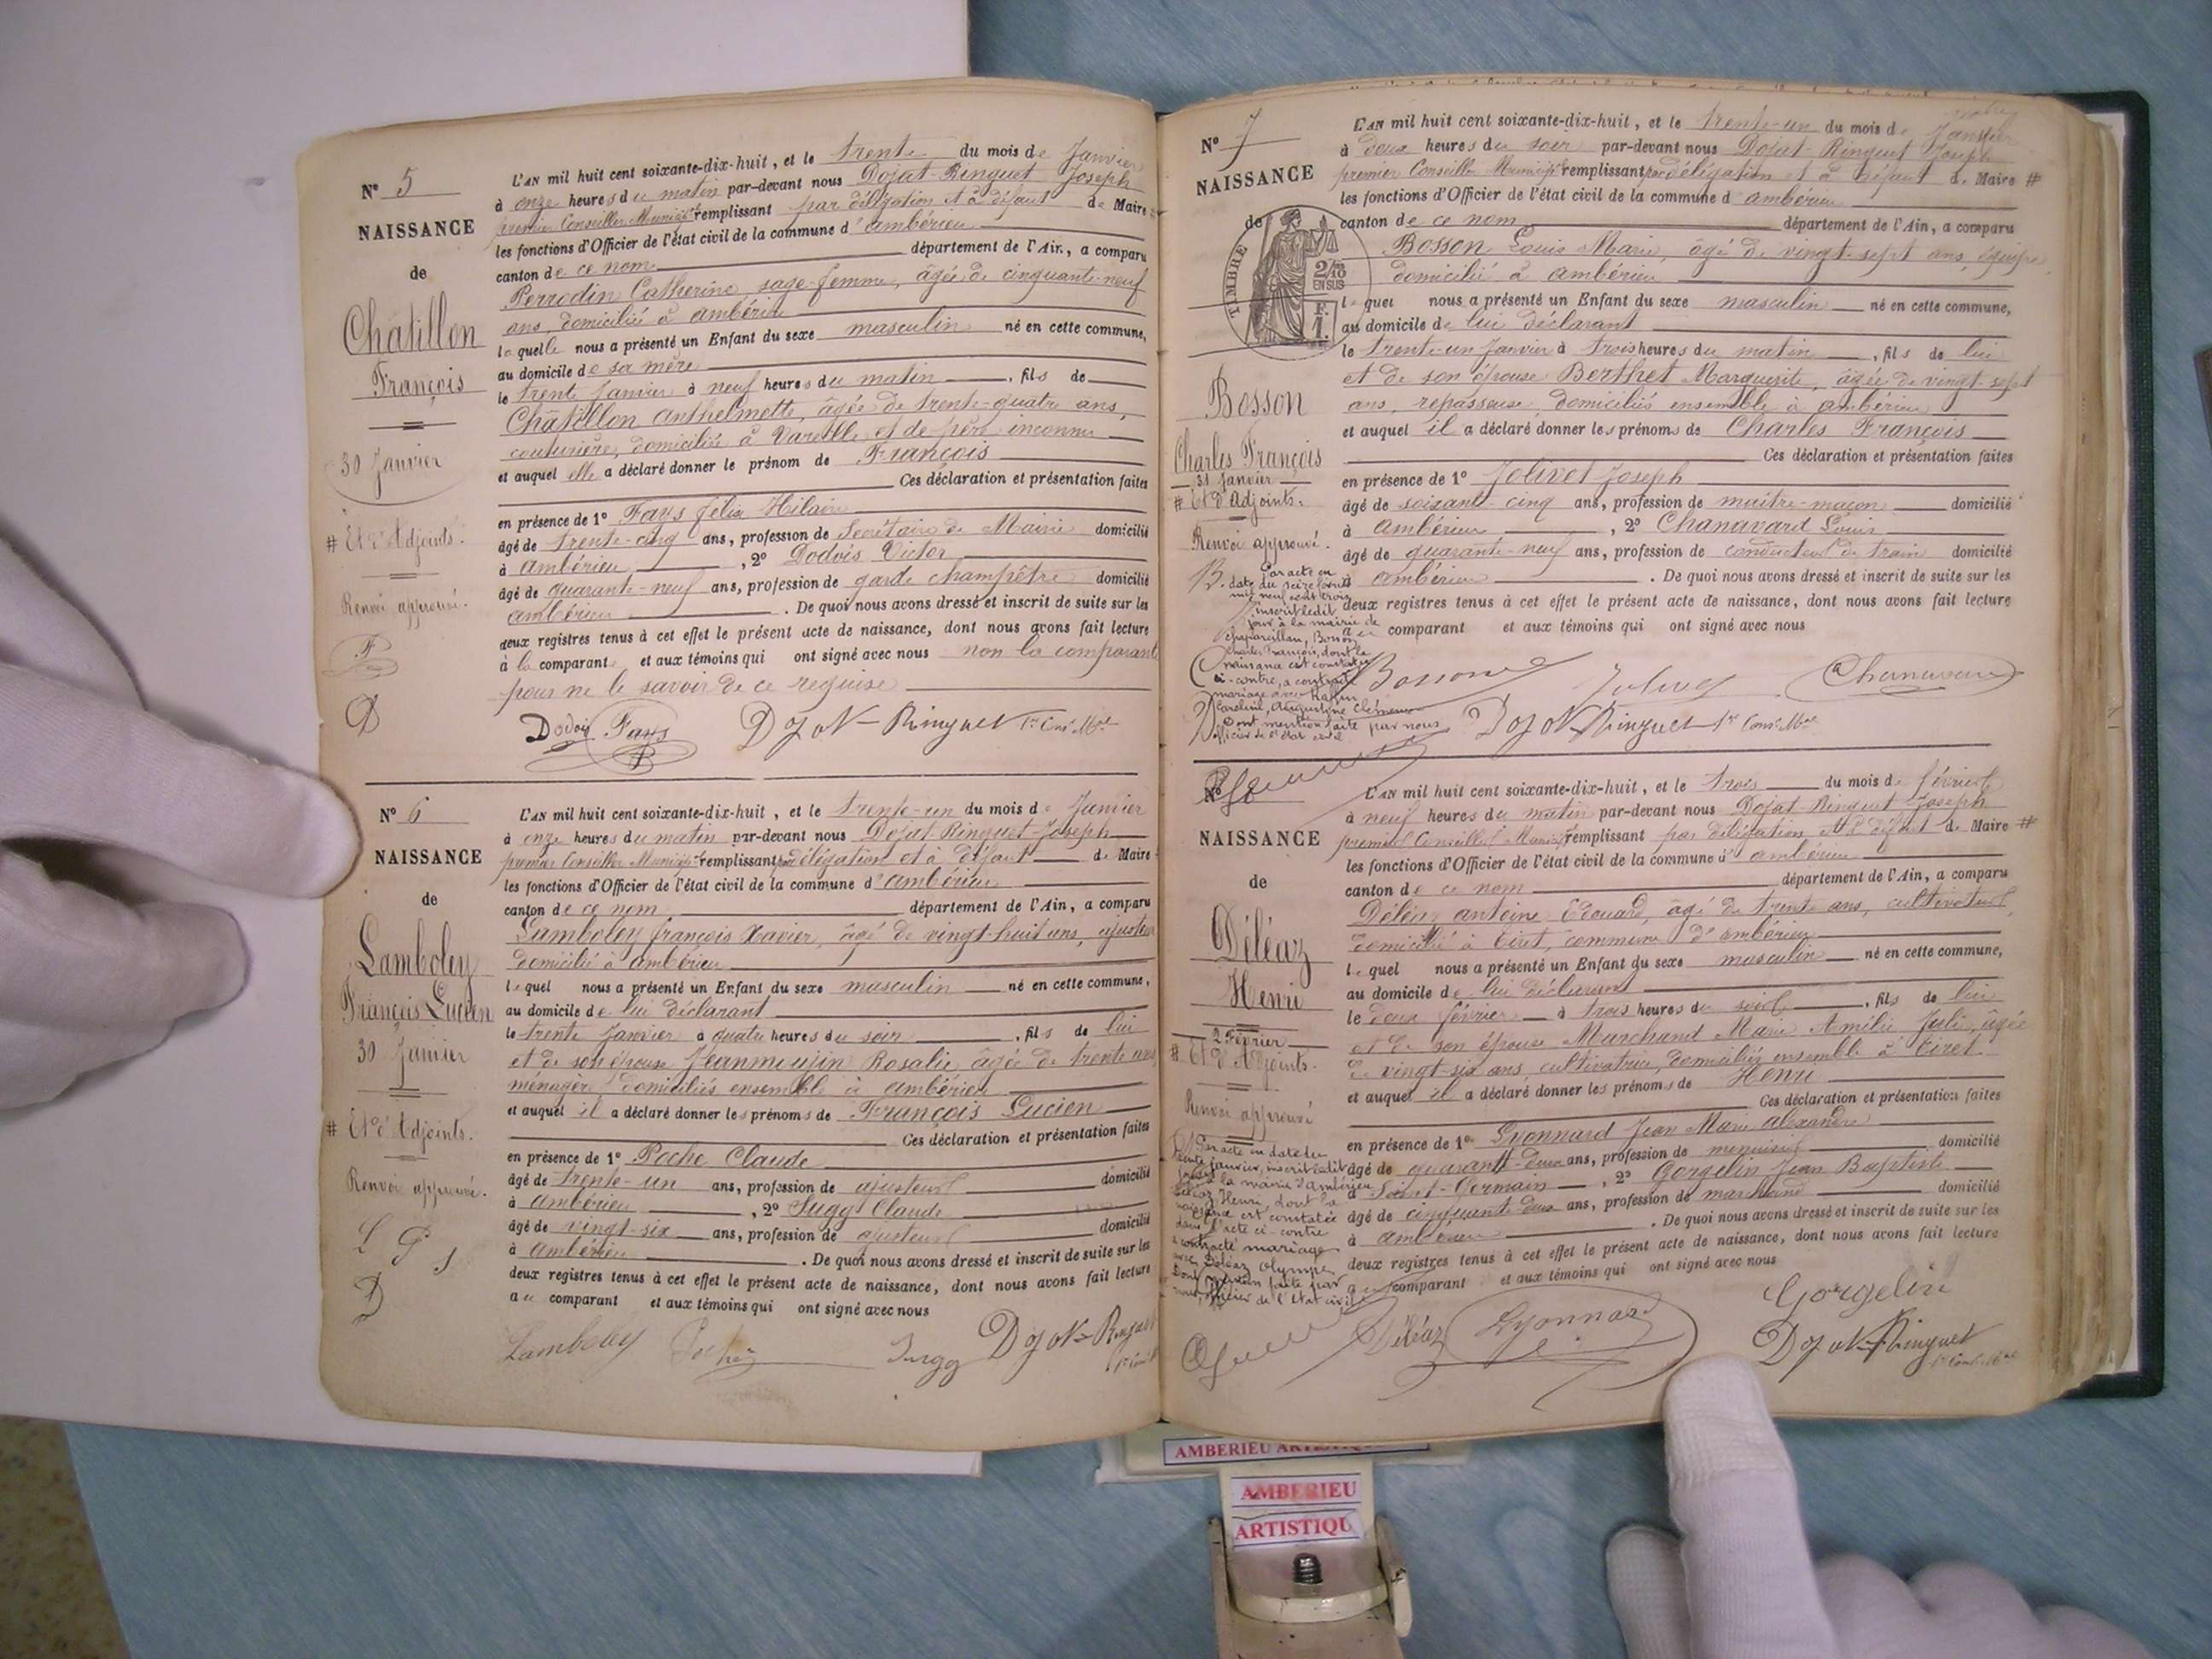 N° 5
NAISSANCE
de
Châtillon
François
30 Janvier
# Et d'Adjoints.
Renvoi approuvé.
F
D
L'AN mil huit cent soixante-dix-huit, et le trente du mois de Janvier
à onze heures du matin par-devant nous Dojat-Ringuet Joseph
premier Conseiller Municipal remplissant par délégation et à défaut de Maire #
les fonctions d'Officier de l'état civil de la commune d'ambérieu
canton de ce nom département de l'Ain, a comparu
Perrodin Catherine, sage-femme, âgée de cinquante-neuf
ans, domiciliée à ambérieu
laquelle nous a présenté un Enfant du sexe masculin né en cette commune,
au domicile de sa mère
le trente Janvier à neuf heures du matin, fils de
Châtillon Anthelmette, âgée de trente-quatre ans,
couturière, domiciliée à Vareille et de père inconnu
et auquel elle a déclaré donner le prénom de François
Ces déclaration et présentation faites
en présence de 1° Fays félix Hilaire
âgé de trente-cinq ans, profession de Secrétaire de Mairie domicilié
à ambérieu, 2° Dodois Victor
âgé de quarante-neuf ans, profession de garde champêtre domicilié
ambérieu. De quoi nous avons dressé et inscrit de suite sur les
deux registres tenus à cet effet le présent acte de naissance, dont nous avons fait lecture
à la comparante et aux témoins qui ont signé avec nous non la comparante
pour ne le savoir de ce requise
Dodois Fays Dojat-Ringuet 1er Cons. Mal
N° 6
NAISSANCE
de
Lamboley
François Lucien
30 Janvier
# Et d'Adjoints.
Renvoi approuvé.
L P S
D
L'AN mil huit cent soixante-dix-huit, et le trente-un du mois de Janvier
à onze heures du matin par-devant nous Dojat Ringuet-Joseph
premier Conseiller Municipal remplissant par délégation et à défaut de Maire
les fonctions d'Officier de l'état civil de la commune d'ambérieu
canton de ce nom département de l'Ain, a comparu
Lamboley françois Xavier, âgé de vingt-huit ans, ajusteur
domicilié à ambérieu
lequel nous a présenté un Enfant du sexe masculin né en cette commune,
au domicile de lui déclarant
le trente Janvier à quatre heures du soir, fils de lui
et de son épouse Jeanmoujin Rosalie, âgée de trente ans
ménagère, domiciliés ensemble à ambérieu
et auquel il a déclaré donner les prénoms de François Lucien
Ces déclaration et présentation faites
en présence de 1° Poche Claude
âgé de trente-un ans, profession de ajusteur domicilié
à ambérieu, 2° Sugy Claude
âgé de vingt-six ans, profession de ajusteur domicilié
à ambérieu. De quoi nous avons dressé et inscrit de suite sur les
deux registres tenus à cet effet le présent acte de naissance, dont nous avons fait lecture
au comparant et aux témoins qui ont signé avec nous
Lamboley Dojat-Ringuet
N° 7
NAISSANCE
de
TIMBRE
2/10 EN SUS
1 F.
Bosson
Charles François
31 Janvier
# Et d'Adjoints.
Renvoi approuvé.
B.
Par acte en
date du seize février
mil neuf cent trois
inscrit ledit
jour à la mairie de
Chapareillan, Bosson
Charles François, dont la
naissance est constatée
ci-contre, a contracté
mariage avec
Augustine Clémence
Dont mention faite par nous
officier de l'état civil
L'AN mil huit cent soixante-dix-huit, et le trente-un du mois de Janvier
à deux heures du soir par-devant nous Dojat-Ringuet Joseph
premier Conseiller Municipal remplissant par délégation et à défaut de Maire #
les fonctions d'Officier de l'état civil de la commune d'ambérieu
canton de ce nom département de l'Ain, a comparu
Bosson Louis Marie, âgé de vingt-sept ans,
domicilié à ambérieu
lequel nous a présenté un Enfant du sexe masculin né en cette commune,
au domicile de lui déclarant
le trente-un Janvier à trois heures du matin, fils de lui
et de son épouse Berthet Marguerite, âgée de vingt-sept
ans, repasseuse, domiciliés ensemble à ambérieu
et auquel il a déclaré donner les prénoms de Charles François
Ces déclaration et présentation faites
en présence de 1° Jolivet Joseph
âgé de soixante-cinq ans, profession de maître-maçon domicilié
à ambérieu, 2° Chanavard Louis
âgé de quarante-neuf ans, profession de conducteur de train domicilié
à ambérieu. De quoi nous avons dressé et inscrit de suite sur les
deux registres tenus à cet effet le présent acte de naissance, dont nous avons fait lecture
au comparant et aux témoins qui ont signé avec nous
Bosson Jolivet Chanavard
Dojat-Ringuet 1er Cons. Mal
N° 8
NAISSANCE
de
Déléaz
Henri
2 Février
# Et d'Adjoints.
Renvoi approuvé
Par acte en date du
Janvier, inscrit ledit
jour à la mairie d'Ambérieu
Déléaz Henri, dont la
naissance est constatée
dans l'acte ci-contre
a contracté mariage
avec Déléaz Olympe
Dont mention faite par
nous, officier de l'état civil
L'AN mil huit cent soixante-dix-huit, et le trois du mois de février
à neuf heures du matin par-devant nous Dojat Ringuet Joseph
premier Conseiller Municipal remplissant par délégation et à défaut de Maire #
les fonctions d'Officier de l'état civil de la commune d'ambérieu
canton de ce nom département de l'Ain, a comparu
Déléaz antoine Edouard, âgé de trente ans, cultivateur,
domicilié à Tiret, commune d'ambérieu
lequel nous a présenté un Enfant du sexe masculin né en cette commune,
au domicile de lui déclarant
le deux février à trois heures du soir, fils de lui
et de son épouse Marchand Marie Amélie Julie, âgée
de vingt-six ans, cultivatrice, domiciliés ensemble à Tiret
et auquel il a déclaré donner les prénoms de Henri
Ces déclaration et présentation faites
en présence de 1° Lyonnard Jean Marie alexandre
âgé de quarante-deux ans, profession de menuisier domicilié
à Saint-Germain, 2° Gorgelin Jean Baptiste
âgé de cinquante-deux ans, profession de marchand domicilié
à ambérieu. De quoi nous avons dressé et inscrit de suite sur les
deux registres tenus à cet effet le présent acte de naissance, dont nous avons fait lecture
au comparant et aux témoins qui ont signé avec nous
Gorgelin
Déléaz Lyonnard Dojat-Ringuet
AMBERIEU ARTISTIQUE
AMBERIEU
ARTISTIQU